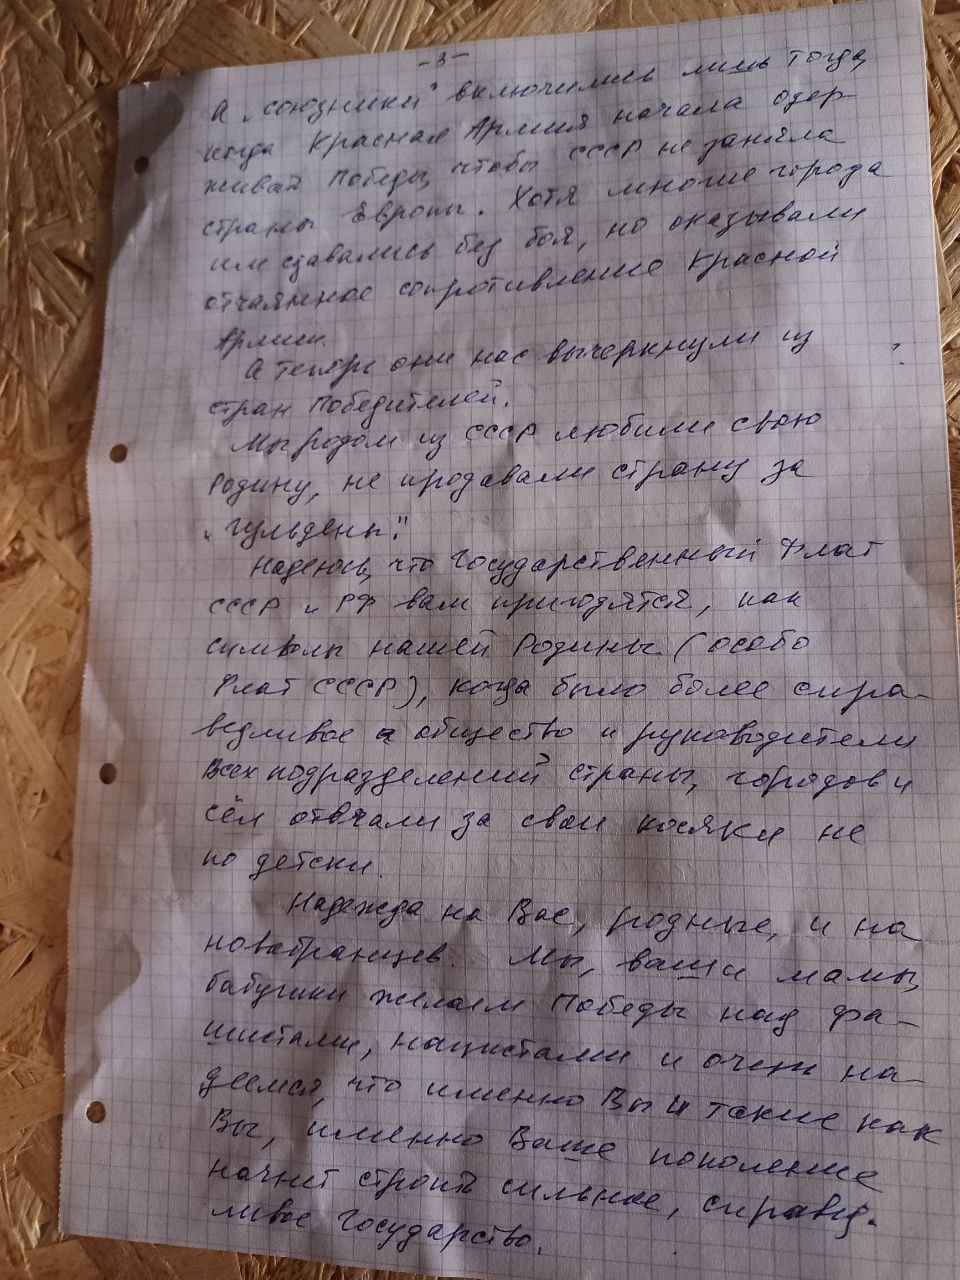 -3-
А „союзники" включились лишь тогда,
когда Красная Армия начала одер-
живать Победы, чтобы СССР не заняла
страны Европы. Хотя многие города
им сдавались без боя, но оказывали
отчаянное сопротивление Красной
Армии.
А теперь они нас вычеркнули из
стран Победителей.
Мы родом из СССР любили свою
Родину, не продавали страну за
„гульдены".
Надеюсь, что Государственный Флаг
СССР и РФ вам пригодятся, как
символы нашей Родины (особо
Флаг СССР), когда было более спра-
ведливое общество и руководители
всех подразделений страны, городов и
сёл отвчали за свои косяки не
по детски.
Надежда на Вас, родные, и на
новобранцев. Мы, ваши мамы,
бабушки желаем Победы над фа-
шистами, нацистами и очень на-
деемся, что именно Вы и такие как
Вы, именно Ваше поколение
начнёт строить сильное, справед-
ливое Государство.